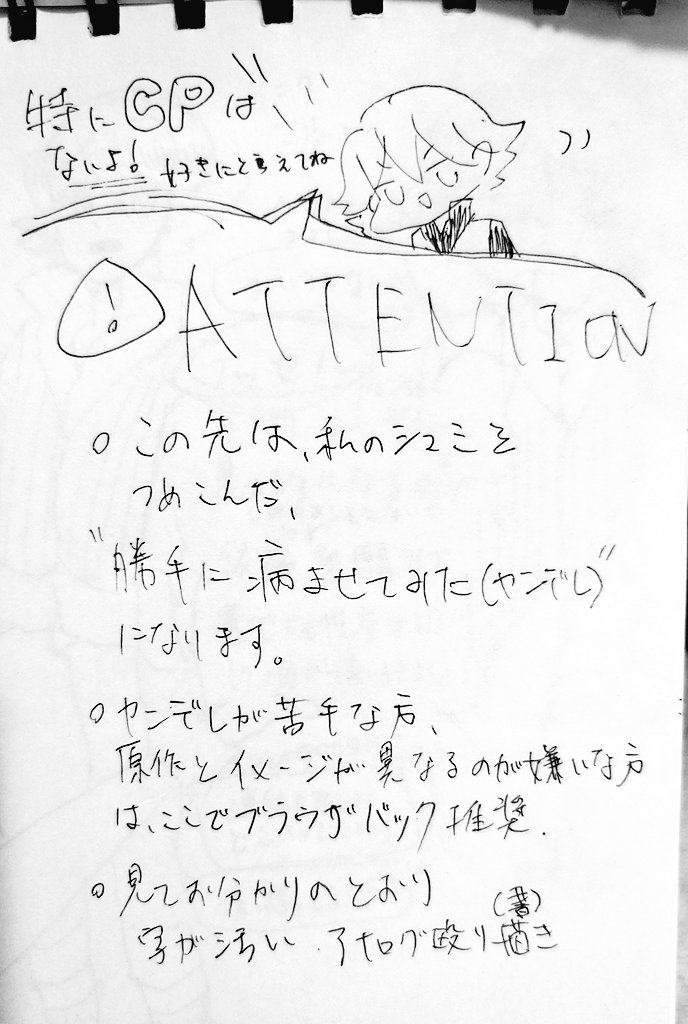 特にCPは
ないよ! 好きに言えてね
! ATTENTION
○ この先は、私のシュミを
つめこんだ、
"勝手に病ませてみた(ヤンデレ)"
になります。
○ ヤンデレが苦手な方、
原作とイメージが異なるのが嫌いな方
は、ここでブラウザバック推奨.
○ 見てお分かりのとおり
字が汚い.アナログ殴り描き
(書)